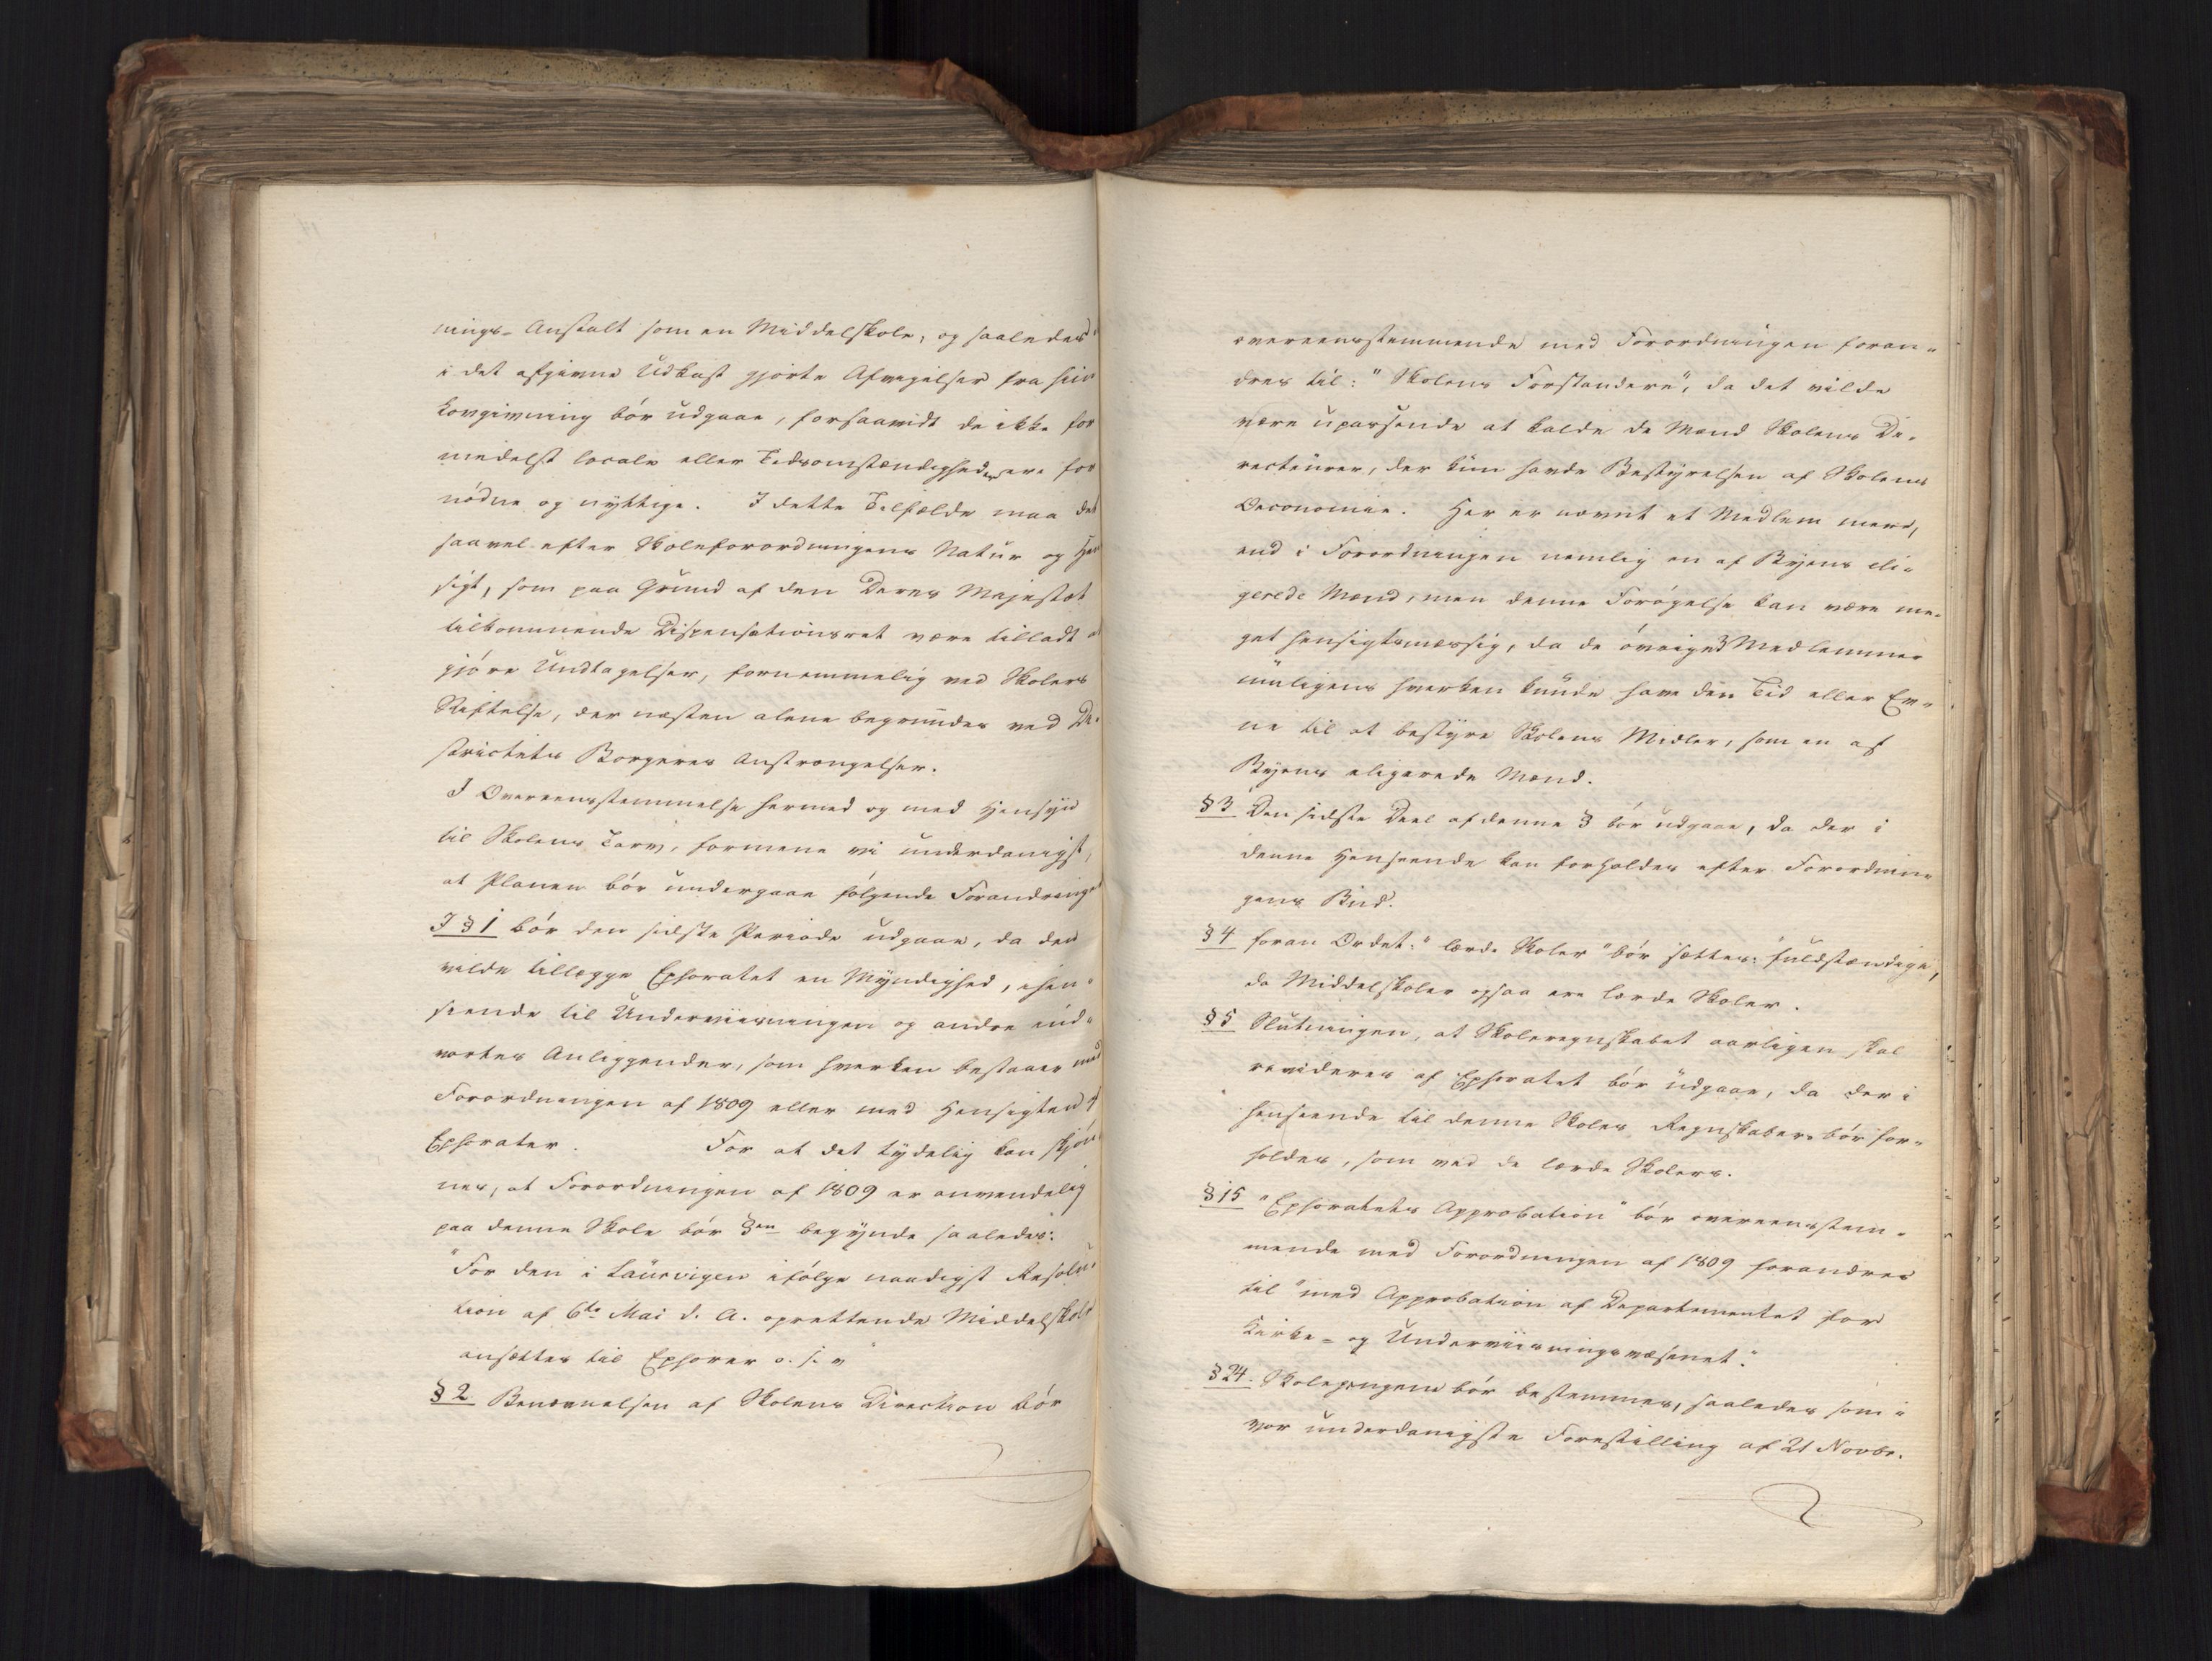 nings-Anstalt som en Middelskole, og saaledes
i det afgivne Udkast gjorte Afvigelser fra hiin
Lovgivning bör udgaae, forsaavidt de ikke for
medelst locale eller Tidsomstændigheder ere for
nödne og nyttige. I dette Tilfælde maa det
saavel efter Skoleforordningens Natur og Hen
sigt, som paa Grund af den Deres Majestæt
tilkommende Dispensationsret være tilladt at
gjöre Undtagelser, fornemmelig ved Skolers
Stiftelse, der næsten alene begrundes ved Di-
strictets Borgeres Anstrængelser.
I Overeensstemmelse hermed og med Hensyn
til Skolens Tarv, formene vi underdanigst,
at Planen bör undergaae fölgende Forandringer
I § 1 bör den sidste Periode udgaae, da den
vilde tillægge Ephoratet en Myndighed, ihen-
seende til Underviisningen og andre ind-
vortes Anliggender, som hverken bestaaer med
Forordningen af 1809 eller med Hensigten af
Ephorater. For at det tydelig kan skjön-
nes, at Forordningen af 1809 er anvendelig
paa denne Skole bör §en begynde saaledes:
"For den i Laurvigen ifölge naadigst Resolu-
tion af 6te Mai d. A. oprettende Middelskole
ansættes til Ephorer o. s. v"
§ 2 Benævnelsen af Skolens Direction bör
overeensstemmende med Forordningen foran-
dres til: "Skolens Forstandere", da det vilde
være upassende at kalde de Mænd Skolens Di-
recteurer, der kun havde Bestyrelsen af Skolens
Oeconomie. Her er nævnt et Medlem mere,
end i Forordningen nemlig en af Byens eli-
gerede Mænd, men denne Forögelse kan være me-
get hensigtsmæssig, da de övrige 3 Medlemmer
muligens hverken kunde have den Tid eller Ev-
ne til at bestyre Skolens Midler, som en af
Byens eligerede Mænd.
§ 3 Den sidste Deel af denne § bör udgaae, da der i
denne Henseende kan forholdes efter Forordnin-
gens Bud.
§ 4 foran Ordet: "lærde Skoler" bör sættes: fuldstændige,
da Middelskoler ogsaa ere lærde Skoler.
§ 5 Slutningen, at Skoleregnskabet aarligen skal
revideres af Ephoratet bör udgaae, da der i
henseende til denne Skoles Regnskaber bör for-
holdes, som ved de lærde Skolers.
§ 15 "Ephoratets Approbation" bör overeensstem-
mende med Forordningen af 1809 forandres
til "med Approbation af Departementet for
Kirke- og Underviisningsvæsenet".
§ 24. Skolepengene bör bestemmes, saaledes som i
vor underdanigste Forestilling af 21 Novbr.